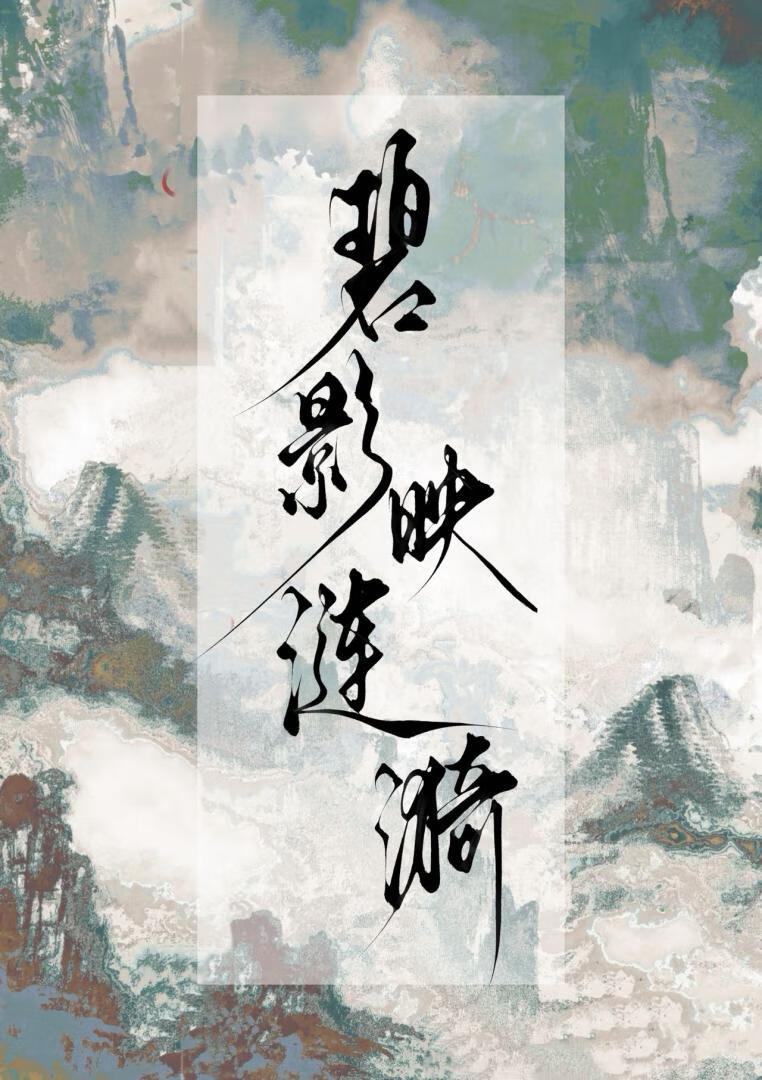 碧影映涟漪